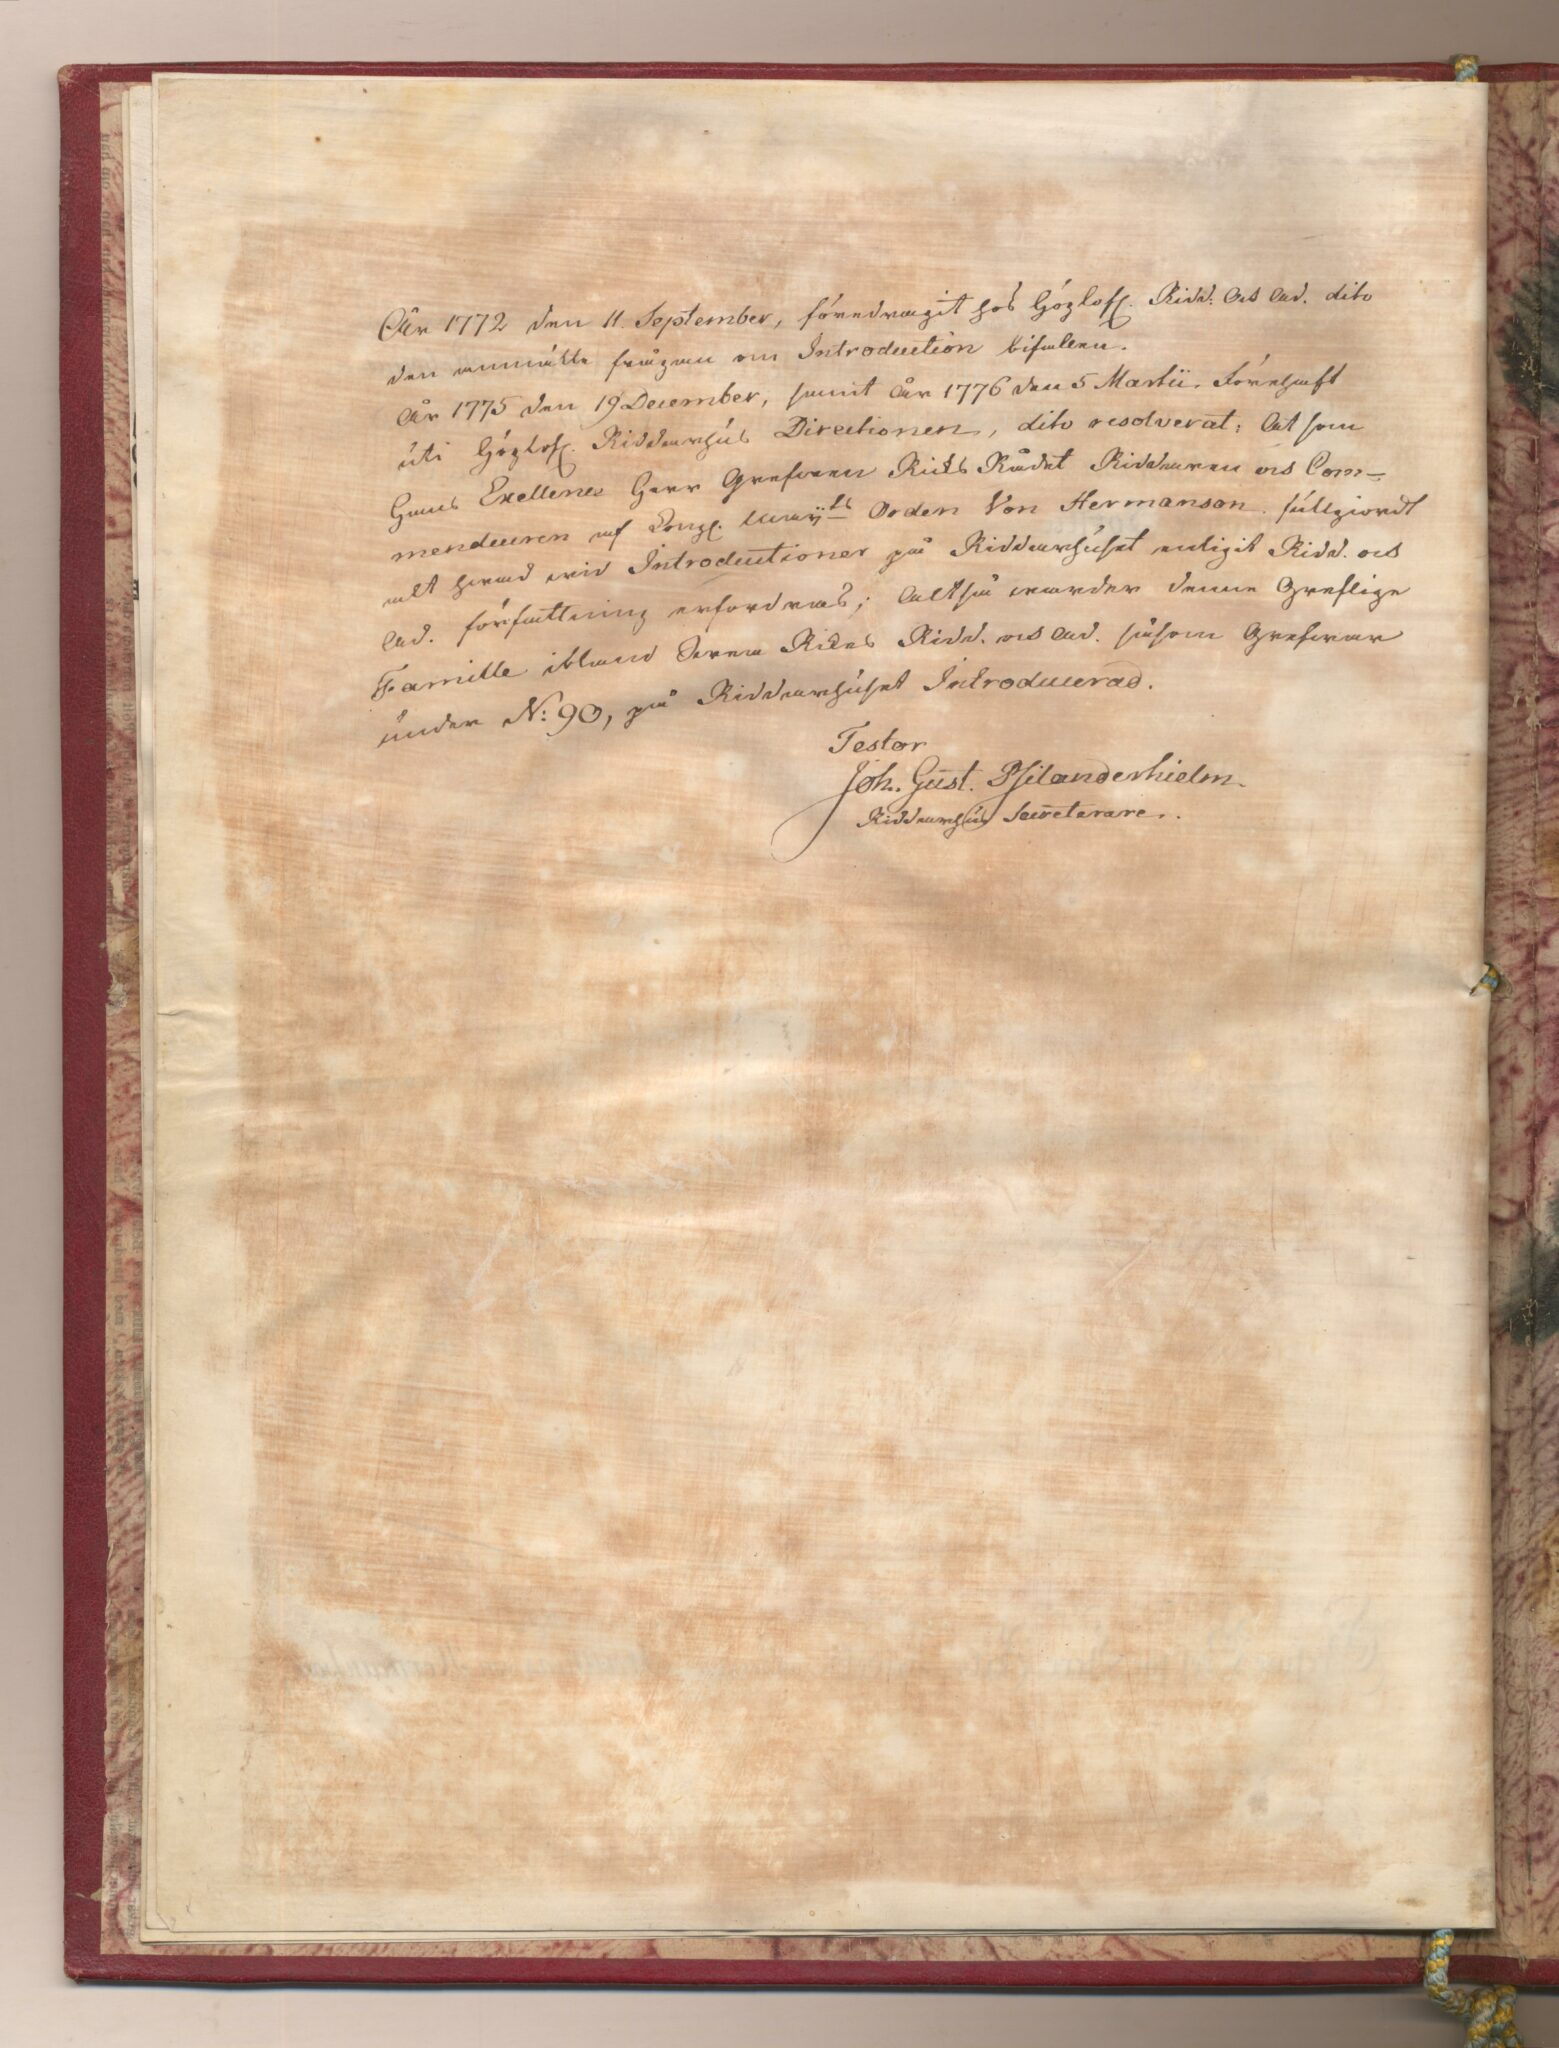 År 1772 den 11. September, föredragit hos Höglofl. Ridd. och Ad. dito
den anmälte frågan om Introduction bifallen.
År 1775 den 19 December, samt År 1776 den 5 Martii. Förehaft
uti Höglofl. Riddarhus Directionen, dito resolverat: At som
Hans Excellence Herr Grefwen Ricks Rådet Riddaren och Com-
mendeuren af Kongl. Maijts Orden Von Hermanson. fullgiordt
alt hwad wid Introductioner på Riddarhuset enligit Ridd. och
Ad. författning erfordras; Altså warder denne Greflige
Famille ibland Swea Rikes Ridd. och Ad. såsom Grefwar
under N: 90, på Riddarhuset Introducerad.
Testor
Joh. Gust. Psilanderhielm.
Riddarhus Secreterare.